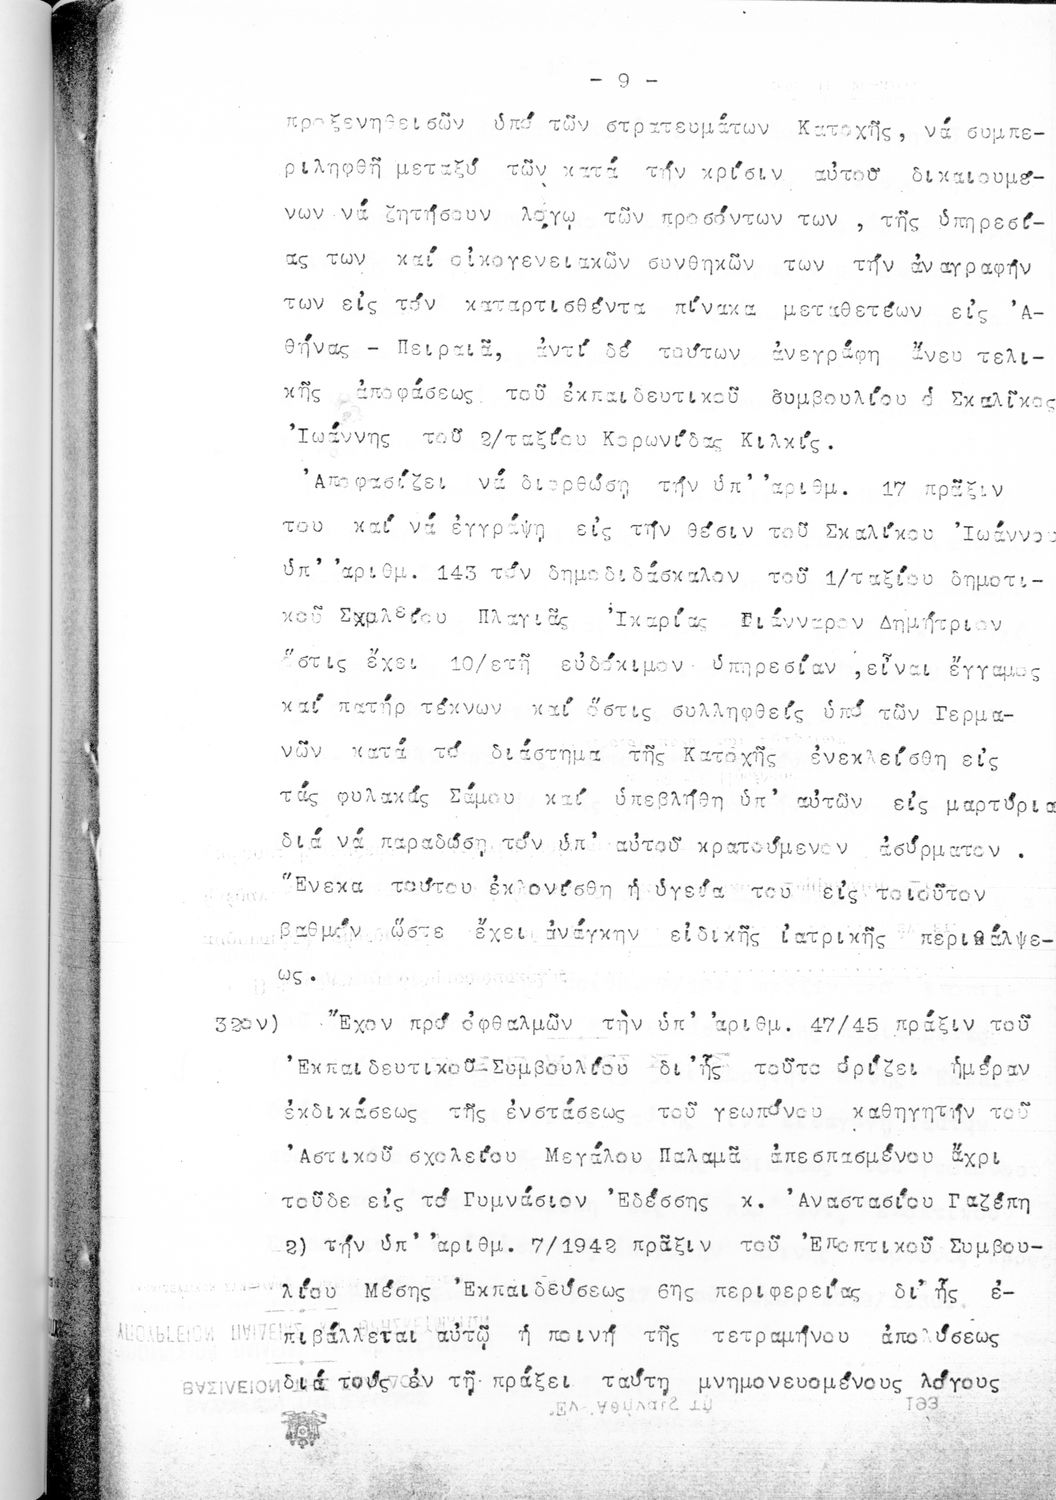 - 9 -
προξενηθεισῶν ὑπό τῶν στρατευμάτων Κατοχῆς, νά συμπε-
ριληφθῆ μεταξύ τῶν κατά τήν κρίσιν αὐτοῦ δικαιουμέ-
νων νά ζητήσουν λόγῳ τῶν προσόντων των , τῆς ὑπηρεσί-
ας των καί οἰκογενειακῶν συνθηκῶν των τήν ἀναγραφήν
των εἰς τόν καταρτισθέντα πίνακα μεταθετέων εἰς Ἀ-
θήνας - Πειραιᾶ, ἀντί δέ τούτων ἀνεγράφη ἄνευ τελι-
κῆς ἀποφάσεως τοῦ ἐκπαιδευτικοῦ συμβουλίου ὁ Σκαλῖκος
Ἰωάννης τοῦ 2/ταξίου Κορωνίδας Κιλκίς.
Ἀποφασίζει νά διορθώση τήν ὑπ' ἀριθμ. 17 πρᾶξιν
του καί νά ἐγγράψη εἰς τήν θέσιν τοῦ Σκαλίκου Ἰωάννου
ὑπ' ἀριθμ. 143 τόν δημοδιδάσκαλον τοῦ 1/ταξίου δημοτι-
κοῦ Σχολείου Πλαγιᾶς Ἰκαρίας Γιάνναρον Δημήτριον
ὅστις ἔχει 10/ετῆ εὐδόκιμον ὑπηρεσίαν ,εἶναι ἔγγαμος
καί πατήρ τέκνων καί ὅστις συλληφθείς ὑπό τῶν Γερμα-
νῶν κατά τό διάστημα τῆς Κατοχῆς ἐνεκλείσθη εἰς
τάς φυλακάς Σάμου καί ὑπεβλήθη ὑπ' αὐτῶν εἰς μαρτύρια
διά νά παραδώση τόν ὑπ' αὐτοῦ κρατούμενον ἀσύρματον .
Ἕνεκα τούτου ἐκλονίσθη ἡ ὑγεία του εἰς τοιοῦτον
βαθμόν ὥστε ἔχει ἀνάγκην εἰδικῆς ἰατρικῆς περιθάλψε-
ως.
32ον) Ἔχον πρό ὀφθαλμῶν τὴν ὑπ' ἀριθμ. 47/45 πράξιν τοῦ
Ἐκπαιδευτικοῦ Συμβουλίου δι' ἧς τοῦτο ὁρίζει ἡμέραν
ἐκδικάσεως τῆς ἐνστάσεως τοῦ γεωπόνου καθηγητήν τοῦ
Ἀστικοῦ σχολείου Μεγάλου Παλαμᾶ ἀπεσπασμένου ἄχρι
τοῦδε εἰς τό Γυμνάσιον Ἐδέσσης κ. Ἀναστασίου Γαζέπη
2) τήν ὑπ' ἀριθμ. 7/1942 πρᾶξιν τοῦ Ἐποπτικοῦ Συμβου-
λίου Μέσης Ἐκπαιδεύσεως 6ης περιφερείας δι' ἧς ἐ-
πιβάλλεται αὐτῷ ἡ ποινή τῆς τετραμήνου ἀπολύσεως
διά τούς ἐν τῇ πράξει ταύτη μνημονευομένους λόγους